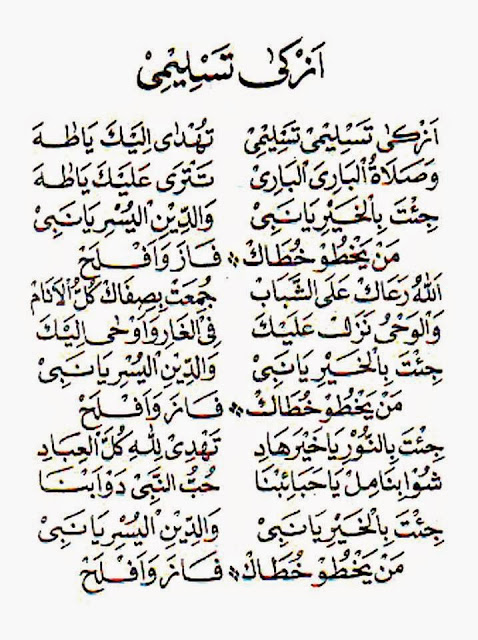 اَزْكٰى تَسْلِيْمِيْ
اَزْكٰى تَسْلِيْمِيْ تَسْلِيْمِيْ تُهْدٰى اِلَيْكَ يَاطٰهَ
وَصَلَاةُ الْبَارِى الْبَارِى تَتْرَى عَلَيْكَ يَاطٰهَ
جِئْتَ بِالْخَيْرِ يَانَبِيْ وَالدِّيْنِ الْيُسْرِ يَانَبِيْ
مَنْ يَخْطُوْ خُطَاكْ فَازَ وَاَفْلَحْ
اَللهُ رَعَاكْ عَلَى الشَّبَابْ جُمِعَتْ بِصِفَاكْ كُلُّ الْاَنَامْ
وَالْوَحْيُ نَزَلَ عَلَيْكَ فِى الْغَارِ وَاَوْحٰى اِلَيْكَ
جِئْتَ بِالْخَيْرِ يَانَبِيْ وَالدِّيْنِ الْيُسْرِ يَانَبِيْ
مَنْ يَخْطُوْ خُطَاكْ فَازَ وَاَفْلَحْ
جِئْتَ بِالنُّوْرِ يَاخَيْرَ هَادِ تَهْدِى لِلّٰهِ كُلَّ الْعِبَادِ
شُوْا بِنَا مِلْ يَاحَبَائِبْنَا حُبُّ النَّبِيْ دَوَابْنَا
جِئْتَ بِالْخَيْرِ يَانَبِيْ وَالدِّيْنِ الْيُسْرِ يَانَبِيْ
مَنْ يَخْطُوْ خُطَاكْ فَازَ وَاَفْلَحْ